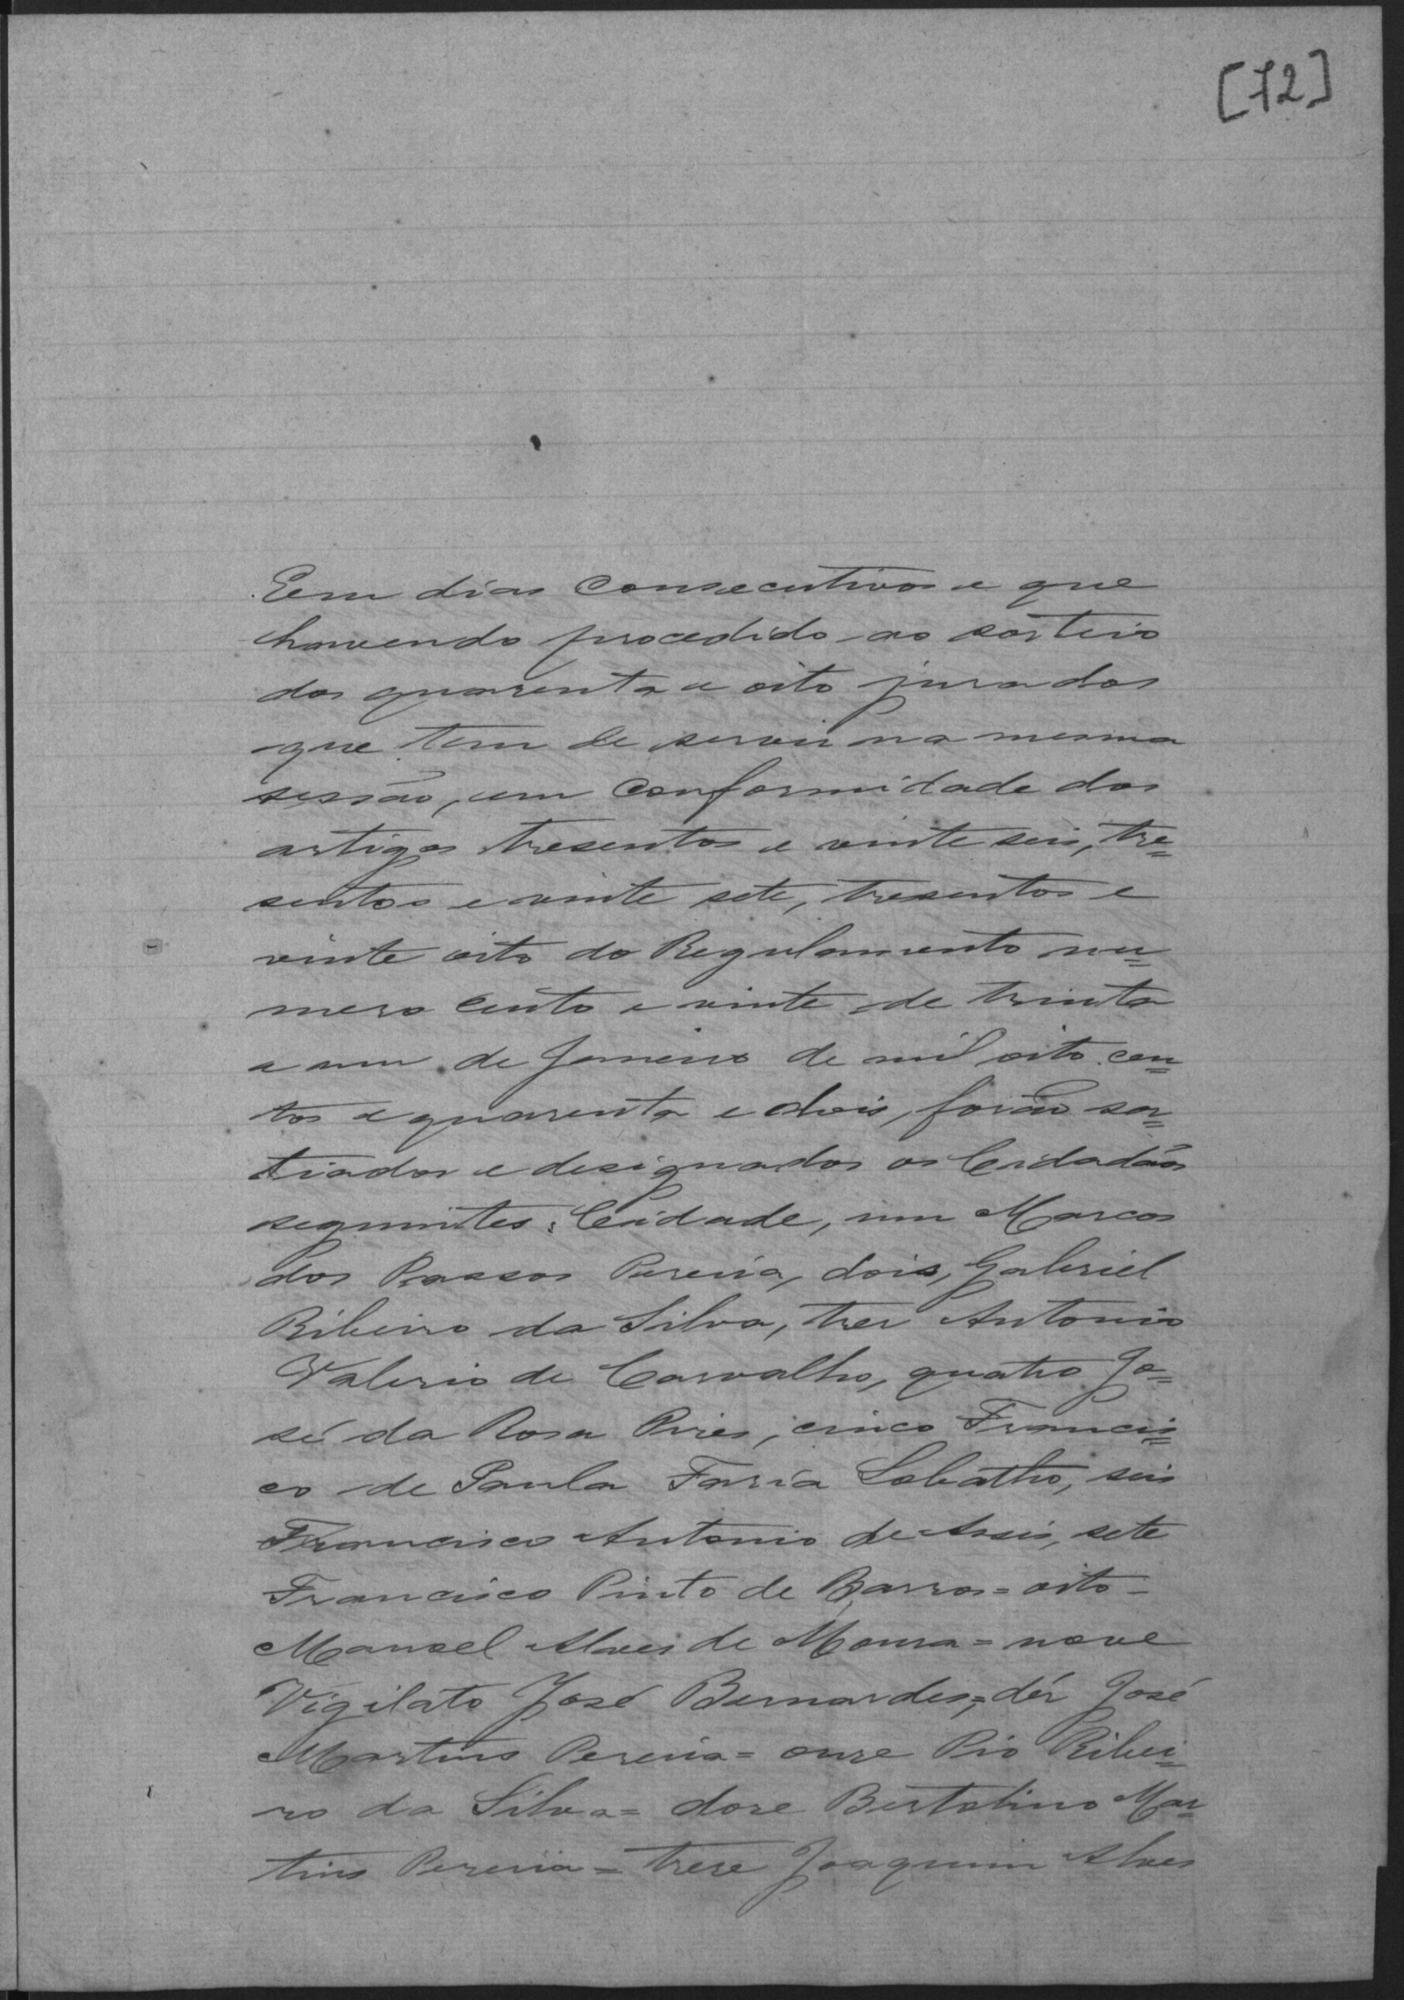 [72]
Em dias consecutivos e que
havendo procedido ao sorteio
dos quarenta e oito jurados
que tem de servir na mesma
sessão, em conformidade dos
artigos tresentos e vinte seis, tre=
sentos e vinte sete, tresentos e
vinte oito do Regulamento nu=
mero cento e vinte de trinta
e um de Janeiro de mil oito cen=
tos e quarenta e dois, forão sor=
tiados e designados os Cidadãos
seguintes: Cidade, um Marcos
dos Passos Pereira, dois, Gabriel
Ribeiro da Silva, tres Antonio
Valerio de Carvalho, quatro Jo=
sé da Rosa Pires, cinco Francis=
co de Paula Faria Lobatho, seis
Francisco Antonio de Assis, sete
Francisco Pinto de Barros = oito -
Manoel Alves de Moura = nove
Vigilato José Bernardes, = dés José
Martins Pereira = onze Pio Ribei=
ro da Silva = doze Bertolino Mar=
tins Pereira = treze Joaquim Alves